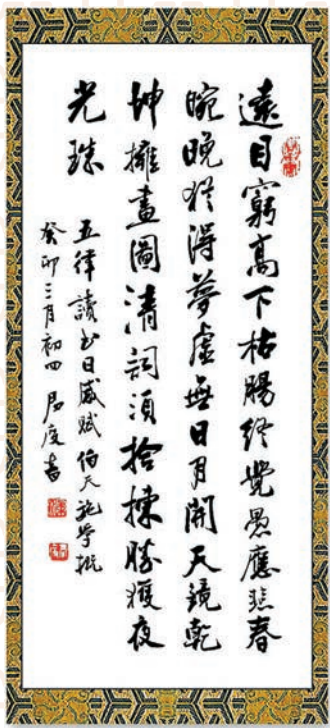 遠目窮高下枯腸終覺愚應悲春
晼晚猶得夢虛無日月開天鏡乾
坤擁畫圖清詞須拾揀勝獲夜
光珠
五律讀书日感賦伯天施學
癸卯三月初四度書